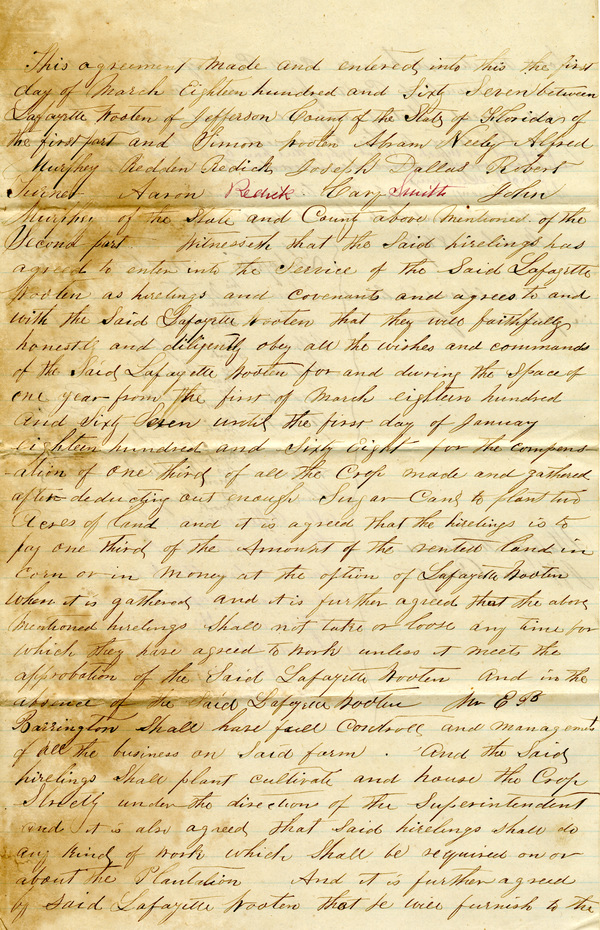 This agreement made and entered into this the first
day of March Eighteen hundred and Sixty Seven between
Lafayette Wooten of Jefferson County of the State of Florida of
the first part and Simon Wooten Abram Neely Alfred
Murphey Redden Redick Joseph Dallas Robert
Turner Aaron Redick Cary Smith John
Murphy of the State and County above Mentioned of the
Second part. Witnesseth that the Said hirelings has
agreed to enter into the Service of the Said Lafayette
Wooten as hirelings and covenants and agrees to and
with the Said Lafayette Wooten that they will faithfully
honestly and diligently obey all the wishes and commands
of the Said Lafayette Wooten for and during the Space of
one year from the first of March eighteen hundred
and Sixty Seven until the first day of January
Eighteen hundred and Sixty Eight for the compens-
-ation of one third of all the Crop made and gathered
after deducting out enough Sugar Cane to plant two
Acres of land and it is agreed that the hirelings is to
pay one third of the Amount of the rented land in
Corn or in Money at the option of Lafayette Wooten
when it is gathered and it is further agreed that the above
Mentioned hirelings Shall not take or loose any time for
which they have agreed to work unless it meets the
approbation of the Said Lafayette Wooten And in the
absence of the Said Lafayette Wooten Mr E B
Barrington Shall have full Controll and managements
of all the business on Said farm. And the Said
hirelings Shall plant cultivate and house the Crop
Strictly under the directions of the Superintendent
and it is also agreed that Said hirelings Shall do
any kind of work which Shall be required on or
about the Plantation And it is further agreed
by Said Lafayette Wooten that he will furnish to the